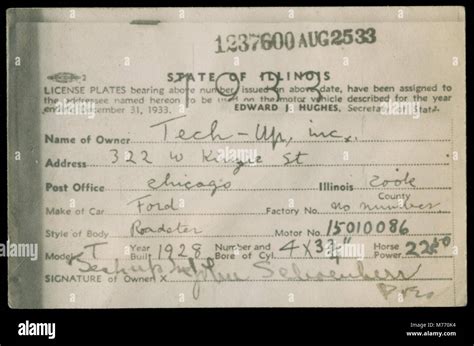 1237600 AUG 25 33
STATE OF ILLINOIS
1933
LICENSE PLATES bearing above number, issued on above date, have been assigned to
the addressee named hereon to be used on the motor vehicle described for the year
ending December 31, 1933. EDWARD J. HUGHES, Secretary of State.
Name of Owner Tech-Up, inc.
Address 322 W Kinzie St
Post Office Chicago Illinois Cook
County
Make of Car Ford Factory No. no number
Style of Body Roadster Motor No. 15010086
Model T Year Built 1928 Number and Bore of Cyl. 4 X 3 3/4" Horse Power 22.50
SIGNATURE of Owner X
Pres
alamy
Image ID: M770K4
www.alamy.com